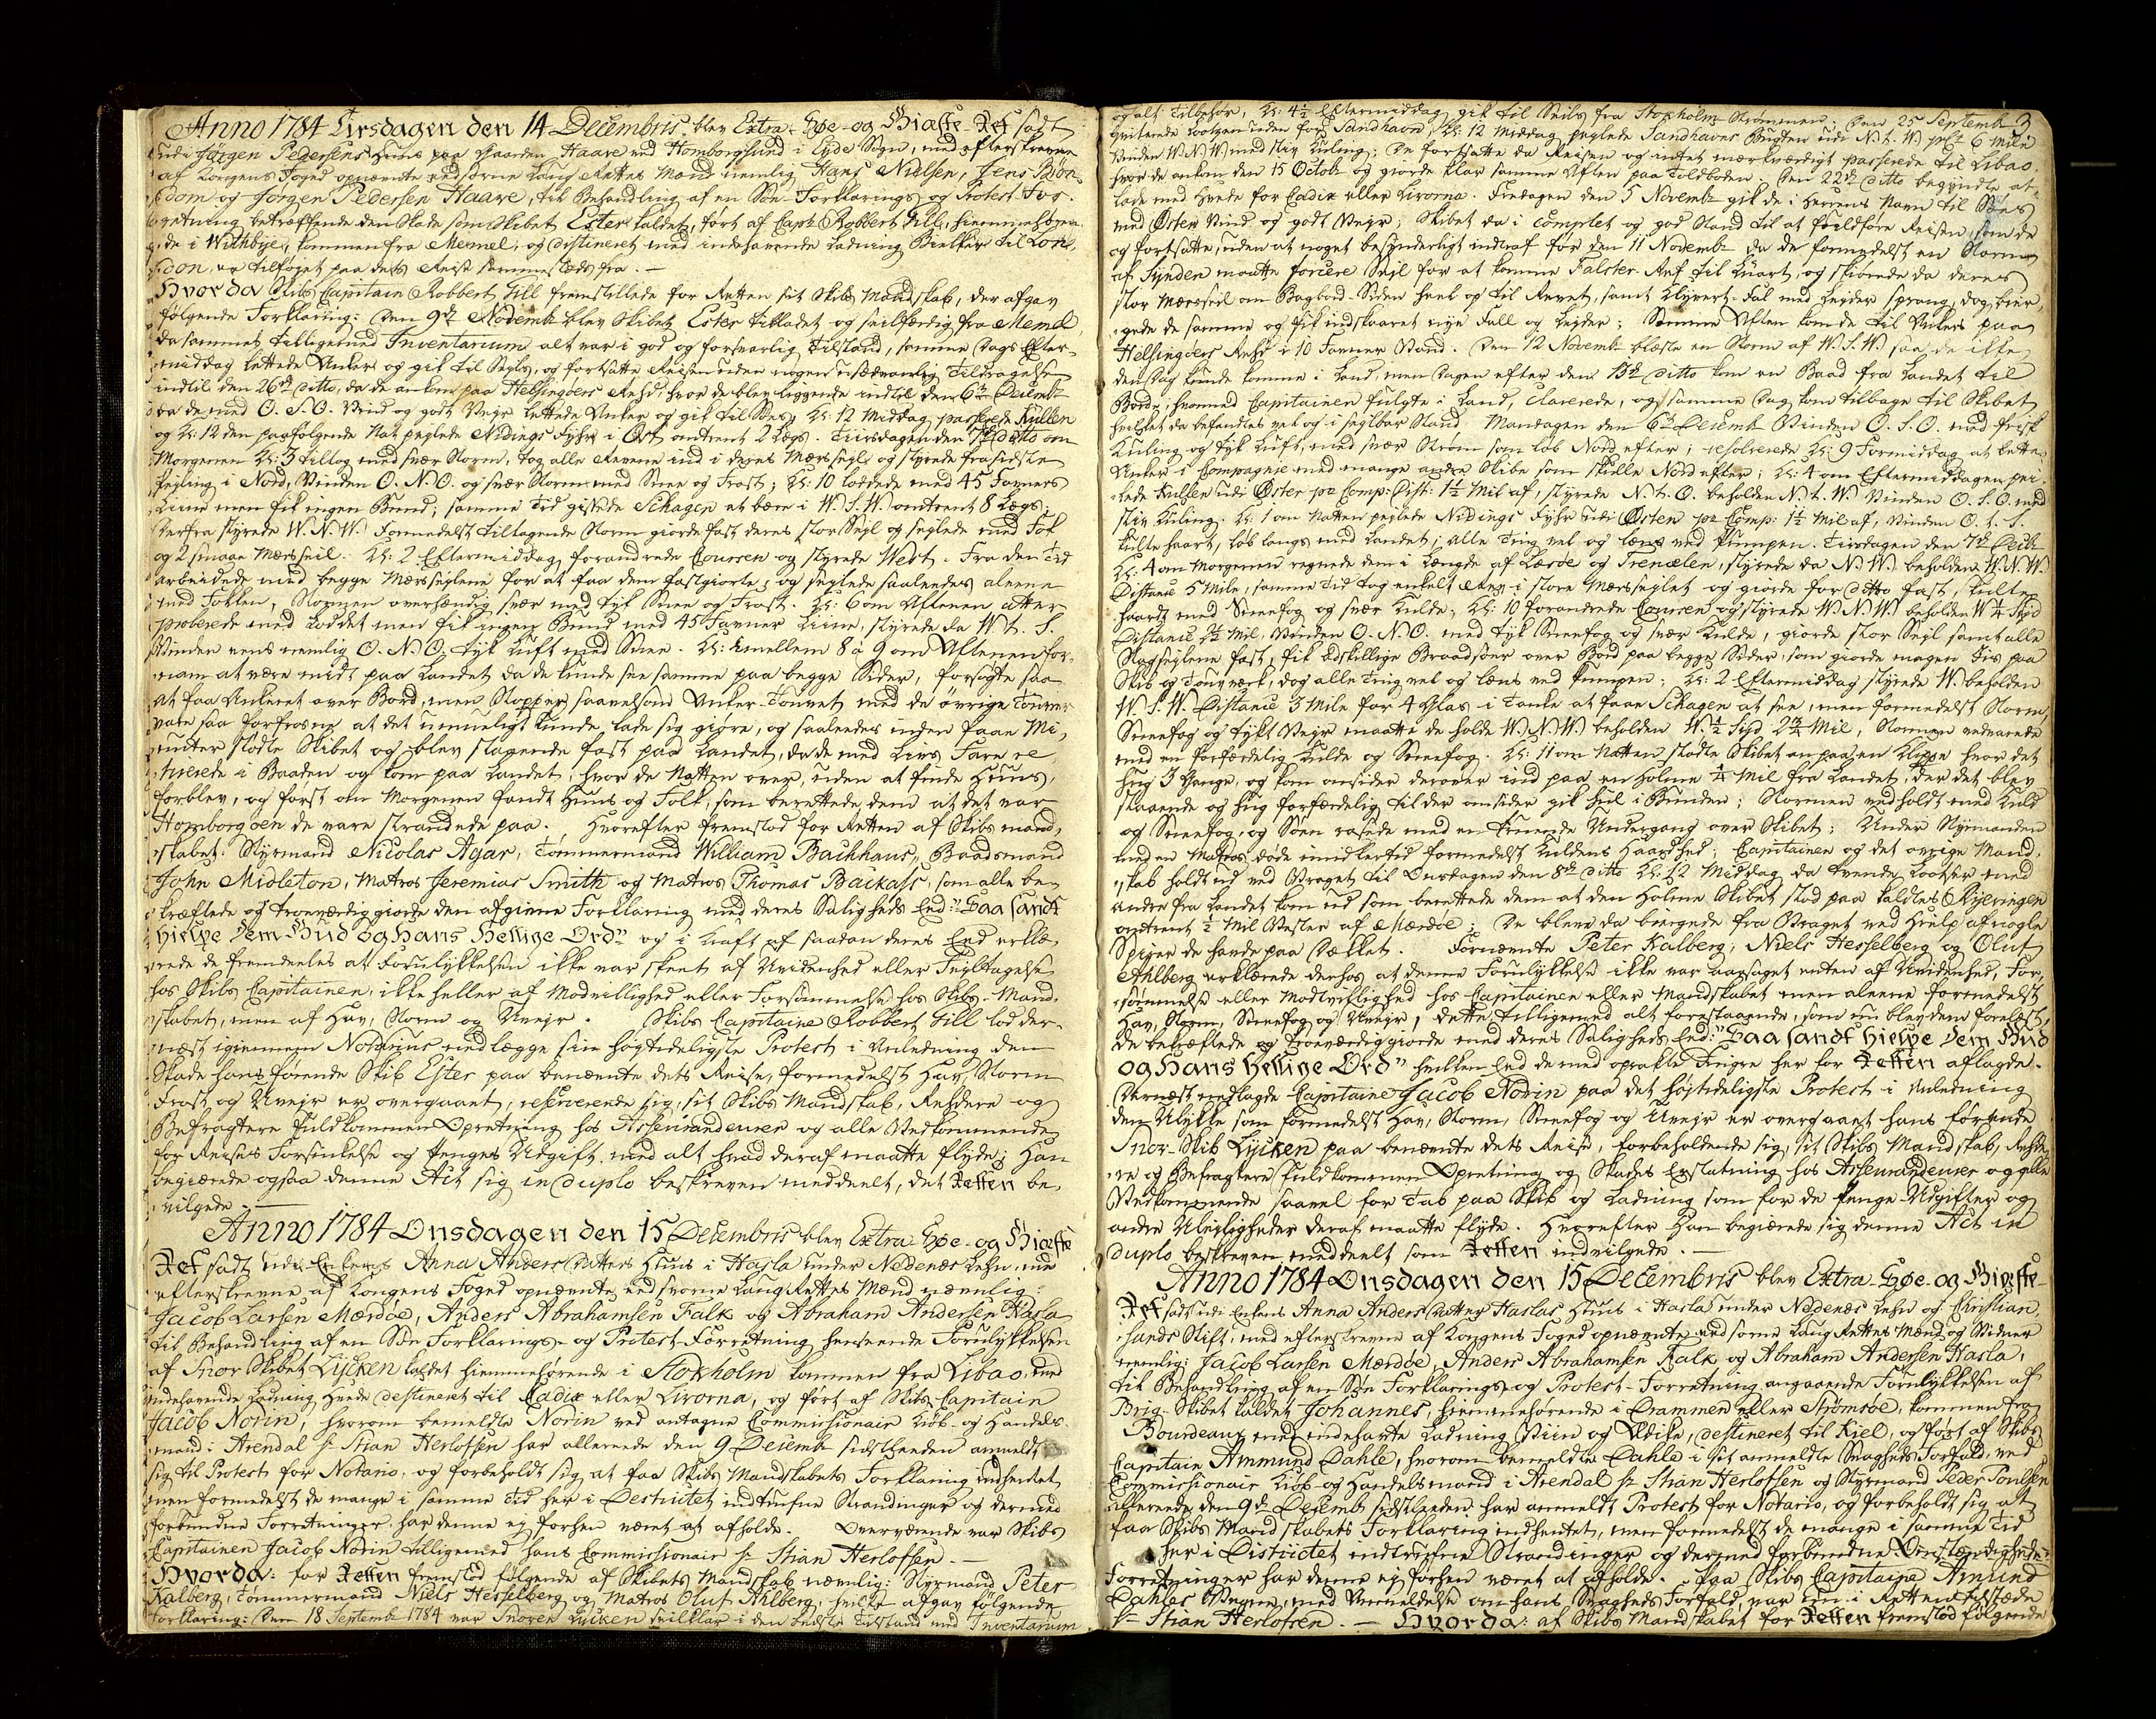 Anno 1784 Tirsdagen den 14 Decembris blev Extra-Søe- og Giæste-Ret sadt
udi Jørgen Pedersens Huus paa Gaarden Haave ved Homborgsund i Eyde Sogn, med efterskrevne
af Kongens Foged opnævnte eedsorne Laug Rettes Mænd nemlig Hans Nielsen, Jens Bøn-
dom og Jørgen Pedersen Haave, til Behandling af en Søe-Forklarings og Protest-For-
retning betræffende den Skade som Skibet Ester kaldet, ført af Capt: Robbert Gill, hiemmehøren-
de i Withbye, kommen fra Memel, og destineret med indehavende Ladning Bielker til Lon-
don, er tilføjet paa dets Reise sammesteds fra. —
Hvor da Skibs Capitain Robbert Gill fremstillede for Retten sit Skibs Mandskab, der afgav
følgende Forklaring: Den 9de Novembr blev Skibet Ester tilladet og seilfærdig fra Memel
da sammes tilligemed Inventarium alt var i god og forsvarlig Tilstand, samme Dags Efter-
middag lettede Anker og gik til Seigls, og fortsatte Reisen uden nogen usædvanlig Tildragelse
indtil den 26de ditto, da de ankom paa Helsingøers Rehd, hvor de blev liggende indtil den 6te Decembr
da de med O. S. O. Vind og godt Vejr lettede Anker og gik til Søes, Kl: 12 Middag passerede Kullen
og Kl: 12 den paafølgende Nat peylede Nidings Fyhr i Øst omtrent 2 Legs. Tiirsdagen den 7de ditto om
Morgenen Kl: 3 tillog med svær Storm, tog alle Reverne ind i deres Mersseyle og styrede fra sidste
Peyling i Nord, Vinden O. N. O. og svær Storm med Snee og Frost; Kl: 10 loddede med 45 Favners
Liine men fik ingen Bund; samme Tid gissede Schagen at være i W. S. W. omtrent 8 Legs;
Derfra styrede W. N. W. Formedelst tiltagende Storm giorde fast deres stor Sejl og seylede med Fok
og 2 smaae Mersseil. Kl: 2 Eftermiddag forandrede Coursen og styrede West. Fra den Tid
arbeidede med begge Mersseylene for at faa dem fastgiorte; og seylede saaledes alene
med Fokken, Stormen overhændig svær med tyk Snee og Frost. Kl: 6 om Aftenen atter
proberede med Loddet men fik ingen Bund med 45 Favner Liine, styrede da W t. S.
Vinden eens nemlig O. N. O. tyk Luft med Snee. Kl: imellem 8 à 9 om Aftenen for-
nam at være midt paa Landet da de kunde see samme paa begge Sider, forsøgte saa
at faa Ankeret over Bord, men Stopper saavelsom Anker-Touvet med de øvrige Touver
vare saa forfrosne at det uemueligt kunde lade sig giøre, og saaledes inden faae Mi-
nuter stødte Skibet og blev staaende fast paa Landet, da de med Livs Fare re-
tirerede i Baaden og kom paa Landet, hvor de Natten over, uden at finde Huus,
forblev, og først om Morgenen fandt Huus og Folk, som berettede dem at det var
Homborgøen de vare strandede paa. Hvorefter fremstod for Retten af Skibs mand-
skabet: Styrmand Nicolas Agar, Tømmermand William Bachhaus, Baadsmand
John Midleton, Matros Jeremias Smith og Matros Thomas Backass, som alle be-
kræftede og troeværdig giorde den afgivne Forklaring med deres Saligheds Eed: "Saa sandt
hielpe dem Gud og hans Hellige Ord" og i Kraft af saadan deres Eed erklæ-
rede de fremdeeles at Forulykkelsen ikke var skeet af Uvidenhed eller Feyltagelse
hos Skibs Capitainen, ikke heller af Modvillighed eller Forsømmelse hos Skibs-Mand-
skabet, men af Hav, Storm og Uvejr. Skibs Capitaine Robbert Gill lod der-
næst igiennem Notarius nedlægge sin høytideligste Protest i Anledning den
Skade hans førende Skib Ester paa benævnte dets Reise, formedelst Hav, Storm
Frost og Uvejr er overgaaet; reserverende sig, sit Skibs Mandskab, Rehdere og
Befragtere fuldkommen Opretning hos Asseurandeurer og alle Vedkommende
for Reises Forsinkelse og Penges Udgift med alt hvad deraf maatte flyde; Han
begiærede ogsaa denne Act sig in duplo beskreven meddeelt, det Retten be-
vilgede. —
Anno 1784 Onsdagen den 15 Decembris blev Extra-Søe- og Giæste
Ret sadt udi Enkens Anna Anders Datters Huus i Hasla under Nedenæs Lehn, med
efterskrevne af Kongens Foged opnævnte eedsorne Laug Rettes Mænd nævnlig:
Jacob Larsen Mærdøe, Anders Abrahamsen Falk og Abraham Andersen Hasla
til Behandling af en Søe Forklarings- og Protest-Forretning henseende Forulykkelsen
af Snor Skibet Lycken kaldet hiemmehørende i Stokholm kommen fra Libao, med
indehavende Ladning Hvede destineret til Cadix eller Livorna, og ført af Skibs-Capitain
Jacob Norin, hvorom bemeldte Norin ved antagne Commissionair Kiøb- og Handels-
mand i Arendal Sr Stian Herlofsen har allereede den 9 Decembr sidstleeden anmeldt
sig til Protest for Notario, og forbeholdt sig, at faa Skibs Mandskabets Forklaring indhentet,
men formedelst de mange i samme Tid her i Destrictet indtrufne Strandinger og dermed
forbundne Forretninger har denne ej forhen været at afholde. Overværende var Skibs
Capitainen Jacob Norin tilligemed hans Commissionair Sr Stian Herlofsen. —
Hvorda: for Retten fremstod følgende af Skibets Mandskab nævnlig: Styrmand Peter
Kalberg, Tømmermand Niels Hesselberg og Matros Oluf Ahlberg, hvilke afgav følgende
Forklaring: Den 18 Septembr 1784 var Snoren Lycken seilklar i den bedste Tilstand med Inventarium
3
og alt Tilbehør, Kl: 4½ Eftermiddag gik til Seils fra Stokholms Strømmen; Den 25 Septembr
qviterede Lootzen uden for Sandhavn, Kl: 12 Middag peylede Sandhavns Bugten udi N. t. W. 6 Mile
Vinden W. N. W. med stiv Kuling; De fortsatte da Reisen og intet mærkværdigt passerede til Libao,
hvor de ankom den 15 Octobr og giorde klar samme Aften paa Toldboden. Den 22de ditto begyndte at
lade med Hvede for Cadix eller Livorna. Fredagen den 5 Novembr gik de i Herrens Navn til Søes
med Østen Vind og godt Vejr; Skibet da i complet og god Stand til at fuldføre Reisen, som de
og fortsatte, uden at noget besynderligt indtraf før den 11 Novembr da de formedelst en Storm
af Synden maatte forcere Seil for at komme Falster-Ref til Luart, og skiørede da deres
stor Mersseil om Bagbord-Siden heel op til Revet, samt Klyvert-Fal med Leyder sprang, dog bier-
gede de samme og fik indskaaret nye Fall og Leyder; Samme Aften kom de til Ankers paa
Helsingøers Rehd i 10 Favner Vand. Den 12 Novembr blæste en Storm af W. S. W. saa de ikke
den Dag kunde komme i Land, men Dagen efter den 13de ditto kom en Baad fra Landet til
Borde, hvormed Capitainen fulgte i Land, clarerede, og samme Dag kom tilbage til Skibet
hvilket da befandtes vel og i seylbar Stand. Mandagen den 6te Decembr Vinden O. S. O. med frisk
Kuling og tyk Luft, med svær Strøm som løb Nord efter; resolverede Kl: 9 Formiddag at lette
Anker i Compagnie med mange andre Skibe som skulle Nord efter; Kl: 4 om Eftermiddagen pei-
lede Kullen udi Øster pr Comp: Dist: 1½ Mil af, styrede N. t. O. beholden N. t. W. Vinden O. S. O. med
stiv Kuling. Kl: 1 om Natten peylede Nidings Fyhr udi Østen pr Comp: 1½ Mil af, Vinden O. t. S.
kulte haart, løb langs med Landet; alle Ting vel og læns ved Pumpen. Tirsdagen den 7de Decbr
Kl: 4 om Morgenen regnede dem i Længde af Læsøe og Trendelen, styrede da N. W. beholden W. N. W.
Distance 5 Mile, samme Tid tog enkelt Rev i store Mersseylet og giorde for ditto fast, kulte
haardt med Sneefog og svær Kulde; Kl: 10 forandrede Coursen og styrede W. N. W. beholden W ¼ Syd
Distance 5½ Mil, Vinden O. N. O. med tyk Sneefog og svær Kulde, giorde stor Sejl samt alle
Stagseylene fast, fik adskillige Braadsøer over Bord paa begge Sider, som giorde megen Iis paa
Skib og Tougværk; dog alle Ting vel og læns ved Pumpen; Kl: 2 Eftermiddag styrede W. beholden
W. S. W. Distance 3 Mile for 4 Glas i Tanke at faae Schagen at see, men formedelst Storm,
Sneefog og tykt Vejr maatte de holde W. N. W. beholden W. ½ Syd 2¾ Mil, Stormen vedvarede
med en forfærdelig Kulde og Sneefog. Kl: 11 om Natten stødte Skibet an paa en Klippe hvor det
hug 3 Gange, og kom omsider derover ind paa en Holme ¼ Mil fra Landet, der det blev
staaende og hug forfærdelig til der omsider gik Huul i Bunden; Stormen vedholdt med Kuld
og Sneefog, og Søen rasede med en truende Undergang over Skibet; Under Styrmanden
med en Matros døde imidlertid formedelst Kuldens Haardhed; Capitainen og det øvrige Mand-
skab holdt ud ved Vraget til Onsdagen den 8de ditto Kl: 12 Middag da tvende Lootser med
andre fra Landet kom ud som berettede dem at den Holme Skibet stod paa kaldtes Rivjeringen
omtrent ½ Mil Vester af Mærdøe; De bleve da biergede fra Vraget ved Hielp af nogle
Spiger de havde paa Dækket. Fornævnte Peter Kalberg, Niels Hesselberg og Oluf
Ahlberg erklærede derhos at denne Forulykkelse ikke var aarsaget enten af Uvidenhed, For-
sømmelse eller Modtvillighed hos Capitainen eller Mandskabet men aleene formedelst
Hav, Storm, Sneefog og Uvejr, dette tilligemed alt forestaaende, som nu blev dem forelæst,
De bekræftede og troeværdig giorde med deres Saligheds Eed: "Saa sandt hielpe dem Gud
og hans Hellige Ord" hvilken Eed de med oprakte Fingre her for Retten aflagde.
Dernæst nedlagde Capitaine Jacob Norin paa det højtideligste Protest i Anledning
den Ulykke som formedelst Hav, Storm, Sneefog og Uvejr er overgaaet hans førende
Snor-Skib Lycken paa benævnte dets Reise, forbeholdende sig, sit Skibs Mandskab, Rehde-
re og Befragtere fuldkommen Opretning og Skades Erstatning hos Asseurandeurer og alle
Vedkommende saavel for Tab paa Skib og Ladning som for de Penge-Udgifter og
andre Uleiligheder deraf maatte flyde. Hvorefter Han begiærede sig denne Act in
duplo beskreven meddeelt som Retten indvilgede. —
Anno 1784 Onsdagen den 15 Decembris blev Extra-Søe- og Giæste-
Ret sadt udi Enkens Anna Anders Datters Haslas Huus i Hasla under Nedenæs Lehn og Christian-
sands Stift, med efterskrevne af Kongens Foged opnævnte eedsorne Laug Rettes Mænd og Vidner
nemlig: Jacob Larsen Mærdøe, Anders Abrahamsen Falk og Abraham Andersen Hasla,
til Behandling af en Søe Forklarings- og Protest-Forretning angaaende Forulykkelsen af
Brig-Skibet kaldet Johannes, hiemmehørende i Drammen eller Strømsøe, kommen fra
Bourdeaux med indehavte Ladning Viin og Ædike, destineret til Kiel, og ført af Skibs
Capitain Ammund Dahle, hvorom bemeldte Dahle i sit anmeldte Svagheds Forfald, ved
Commissionair Kiøb- og Handelsmand i Arendal Sr Stian Herlofsen og Styrmand Peder Poulsen
allereede den 9de Decemb sidstleeden har anmeldt Protest for Notario, og forbeholdt sig at
faa Skibs Mandskabets Forklaring indhentet, men formedelst de mange i samme Tid
her i Districtet indtrufne Strandinger og dermed forbundne Omstændigheder
Forretninger har denne ej forhen været at afholde. Paa Skibs Capitaine Amund
Dahles Vegne, med Anmeldelse om hans Svagheds Forfald, var nu i Retten tilstæde
Sr Stian Herlofsen. — Hvorda: af Skibs Mandskabet for Retten fremstod følgende